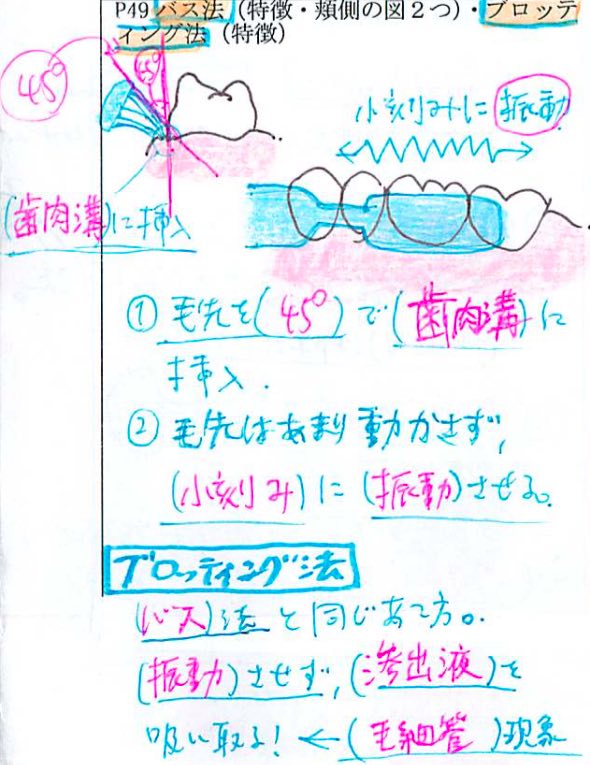 P49 バス法 (特徴・頬側の図２つ)・ブロッテ
ィング法 (特徴)
45°
45°
小刻みに 振動
(歯肉溝)に挿入
① 毛先を(45°)で(歯肉溝)に
挿入.
② 毛先はあまり動かさず,
(小刻み)に(振動)させる。
ブロッティング法
(バス)法と同じあて方。
(振動)させず,(滲出液)を
吸い取る! ← (毛細管)現象